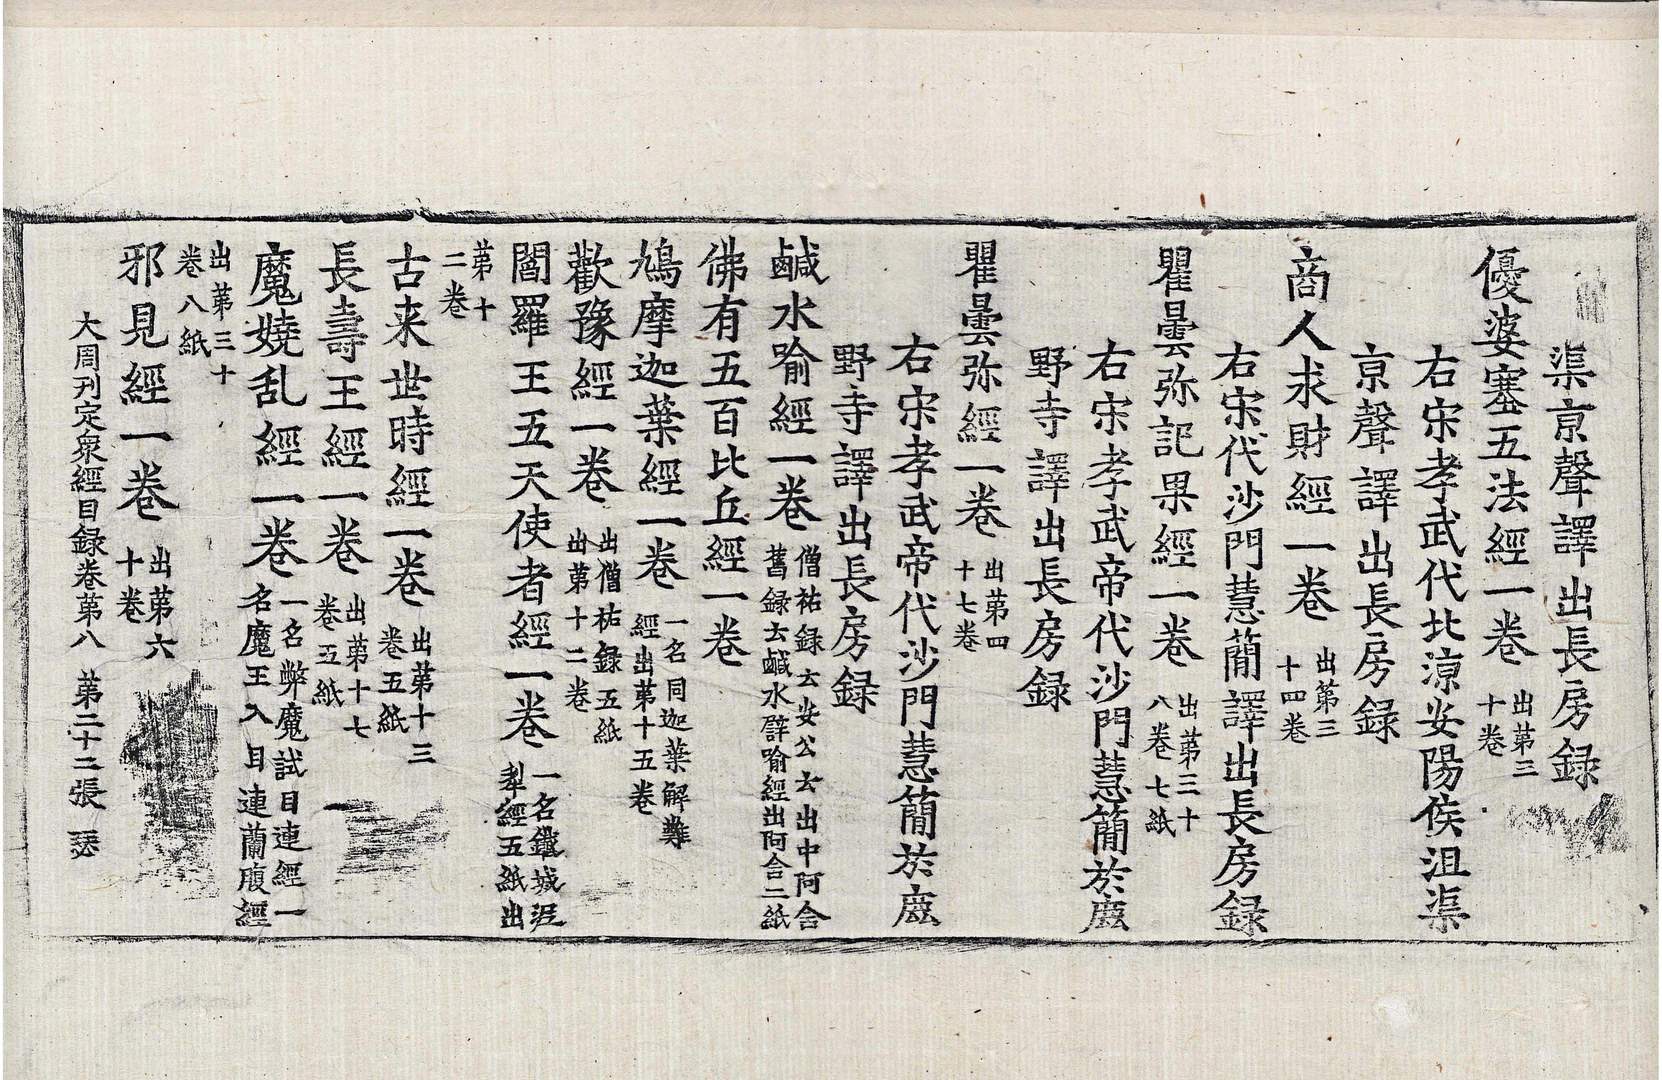 渠京聲譯出長房録
優婆塞五法經一卷出苐三十卷
右宋孝武代北涼安陽侯沮渠
京聲譯出長房録
商人求財經一卷出苐三十四卷
右宋代沙門慧簡譯出長房録
瞿曇弥記果經一卷出苐三十八卷七紙
右宋孝武帝代沙門慧簡於鹿
野寺譯出長房録
瞿曇弥經一卷出苐四十七卷
右宋孝武帝代沙門慧簡於鹿
野寺譯出長房録
鹹水喻經一卷僧祐録云安公云出中阿含舊録云鹹水譬喻經出阿含二紙
佛有五百比丘經一卷
鳩摩迦葉經一卷一名同迦葉解難經出苐十五卷
歡豫經一卷出僧祐録五紙出苐十二卷
閻羅王五天使者經一卷一名鐵城泥犁經五紙出
苐十二卷
古来世時經一卷出苐十三卷五紙
長壽王經一卷出苐十七卷五紙
魔嬈乱經一卷一名弊魔試目連經一名魔王入目連蘭腹經
出苐三十卷八紙
邪見經一卷出苐六十卷
大周刊定衆經目録卷苐八 苐二十二張 瑟